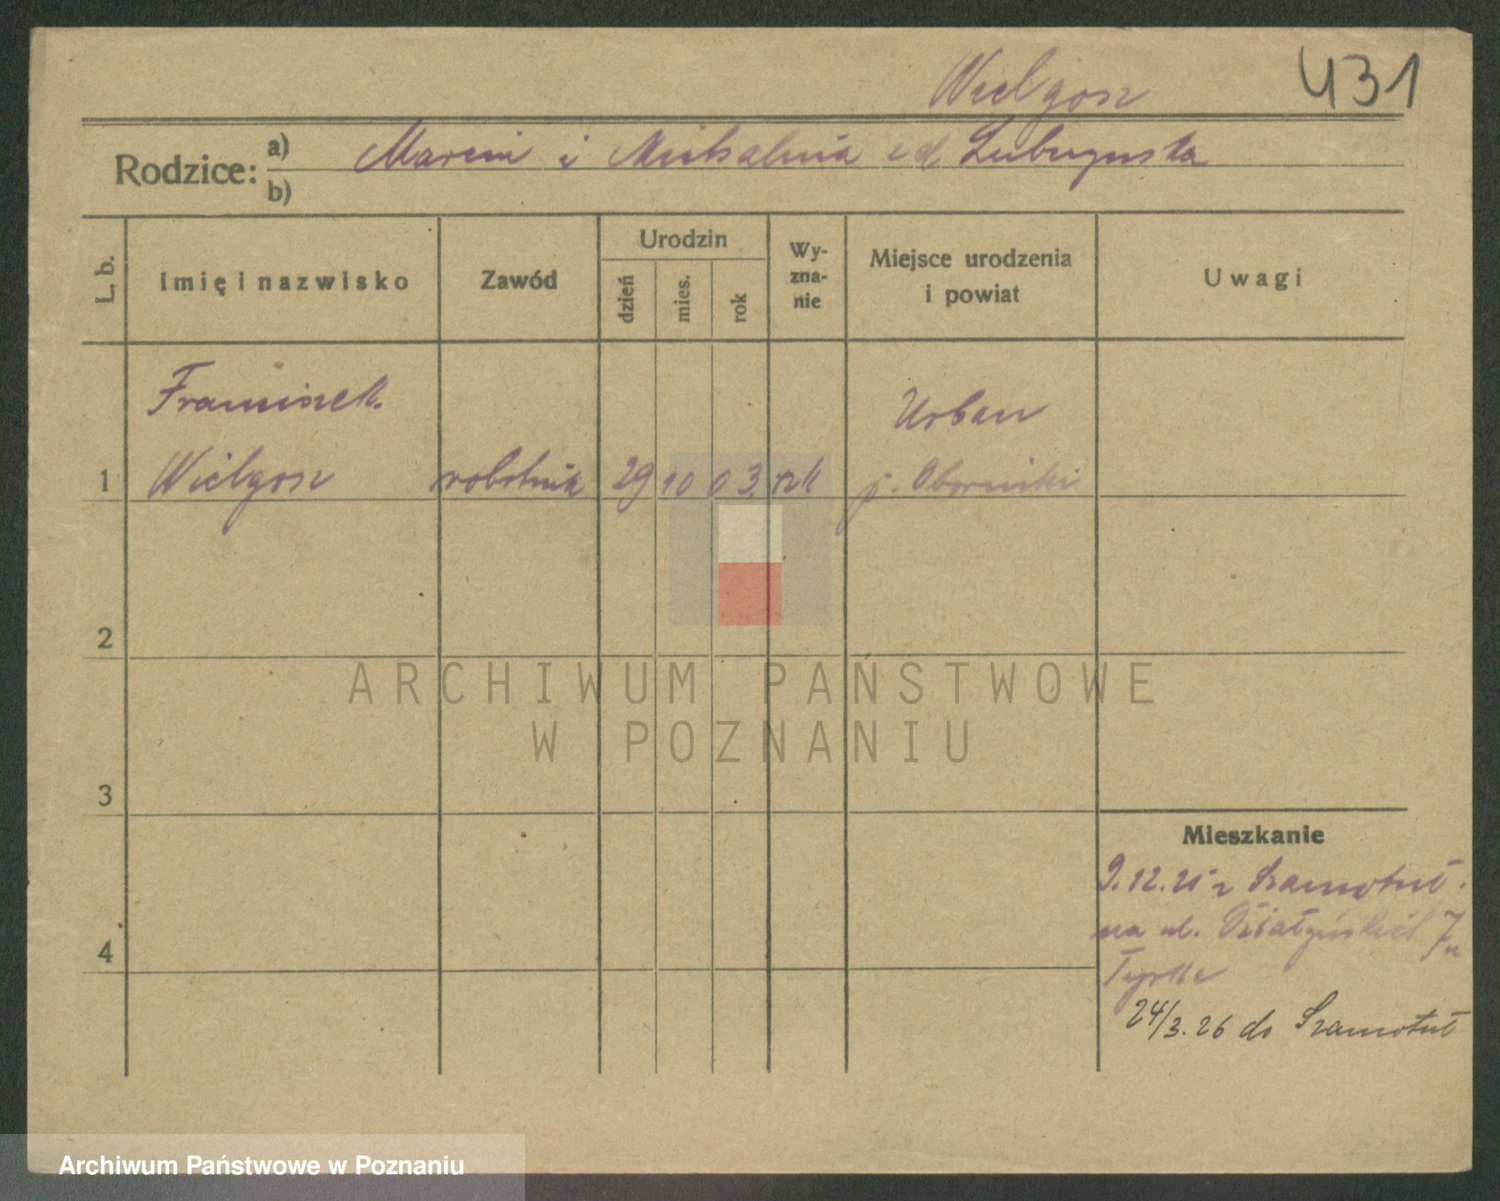 Wielgosz
431
Rodzice: a) Marcin i Michalina z d
b)
L. b.
Imię i nazwisko
Zawód
Urodzin
dzień
mies.
rok
Wy-
zna-
nie
Miejsce urodzenia
i powiat
Uwagi
Franciszek
Urban
1 Wielgosz robotnik 29 10 03. rzk p. Oborniki
2
3
4
Mieszkanie
9.12.25 z Szamotuł.
na ul. Działyńskich 7 u
24/3.26 do Szamotuł
ARCHIWUM PAŃSTWOWE
W POZNANIU
Archiwum Państwowe w Poznaniu